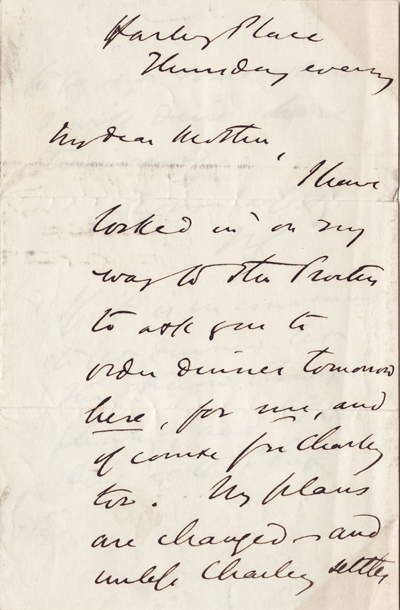 Harley Place
Thursday evening
My dear Mother,
I have
looked in on my
way to the Procters
to ask you to
order dinner tomorrow
here, for me, and
of course for Charley
too. My plans
are changed - and
unless Charley settles